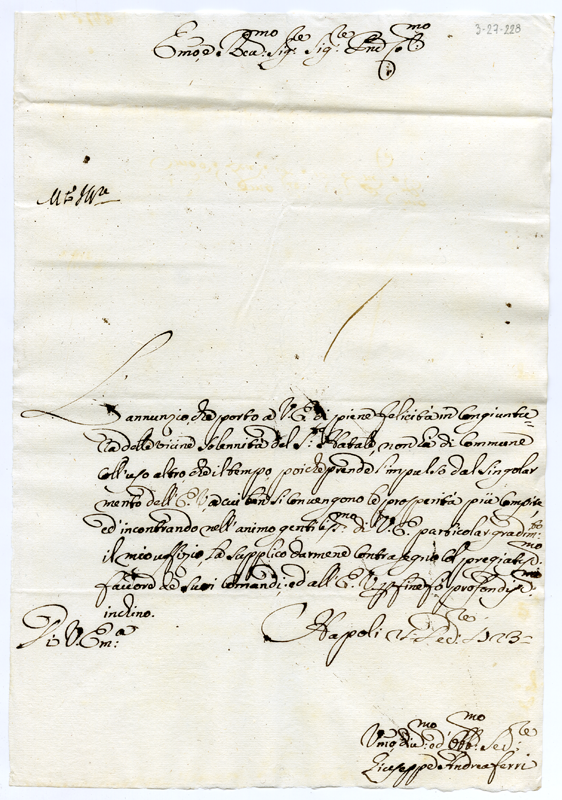 3-27-228
Emo, e Rea:mo Sigre Sigre Pne Co:mo
L'annunzio, che porto a V.E. di piene felicità in congiuntu=
ra delle vicine solennità del S.to Natale, non ha di commune
coll'uso altro, che il tempo, poiche prende l'impulso dal singolar
merito dell'E.V. a cui ben si convengono le prosperità più compite
ed incontrando nell'animo gentiliss.mo di V.E. particolar gradim:to
il mio uffizio, la supplico darmene contrasegno col pregiatis.mo
favore de suoi comandi; ed all'E.V. per fine fò profondis.mo
inchino.
Di V. Em:a
Napoli
Umo div:mo ed Obb:mo Se:re
Giuseppe de Andrea ferri